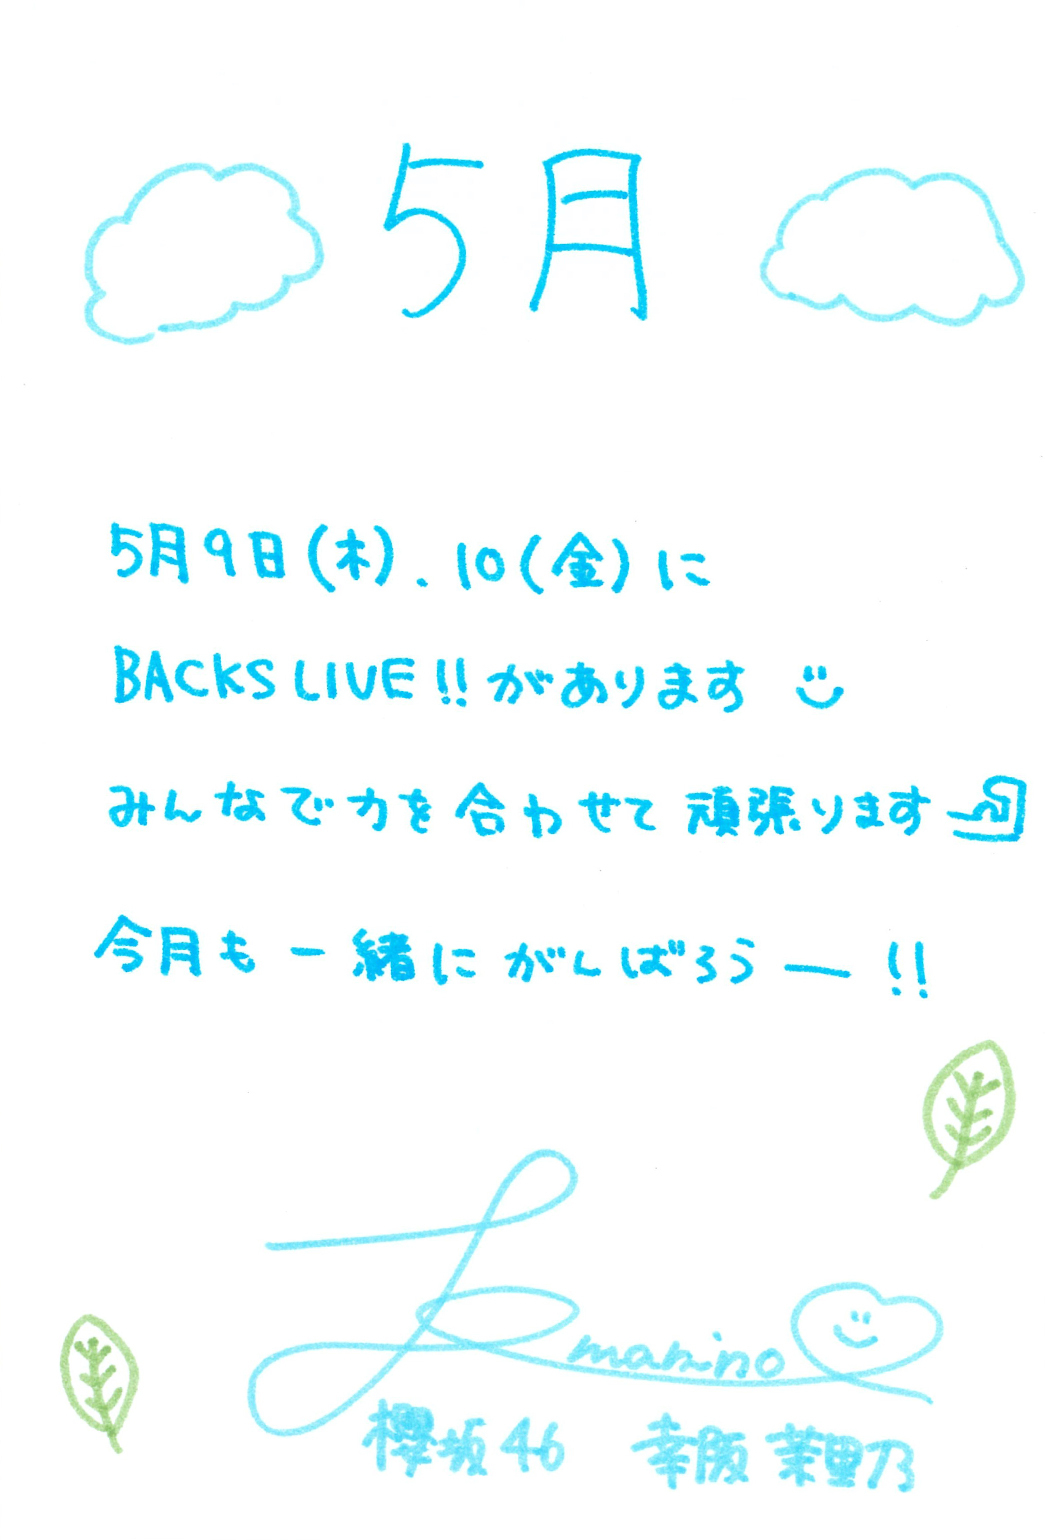 5月
5月9日(木).10(金)に
BACKS LIVE!!があります
みんなで力を合わせて頑張ります
今月も一緒にがんばろうー!!
marino
櫻坂46 幸阪茉里乃